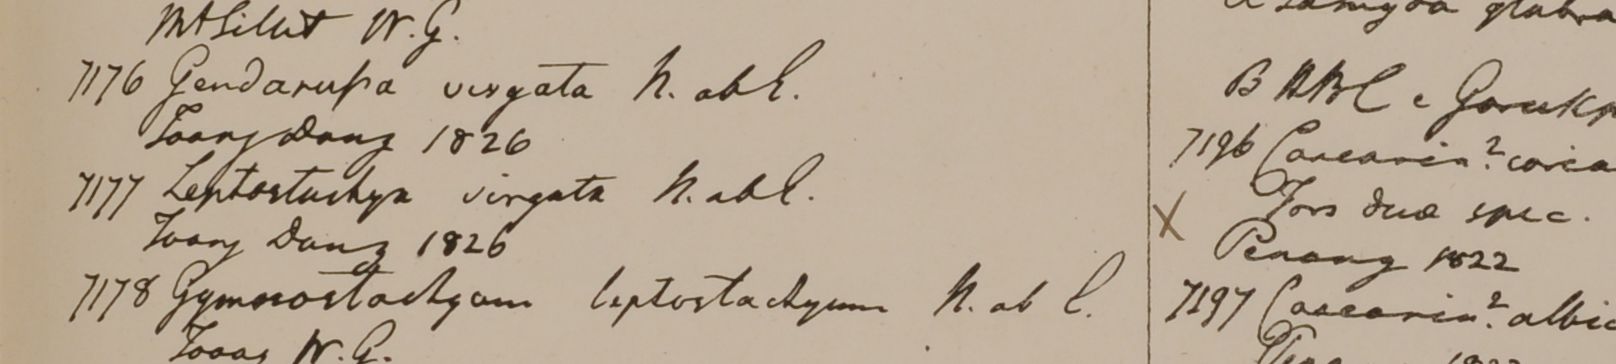 Mt Sillet W.G.
7176 Gendarussa virgata N. ab E.
Toong Dong 1826
7177 Leptostachya virgata N. ab E.
Toong Dong 1826
7178 Gymnostachyum leptostachyum N. ab E.
Toong W.G.
a Samyda glabra
B HBC e Gorukp
7196 Casearia? coria
X Fors duæ spec.
Penang 1822
7197 Casearia? albic
1822